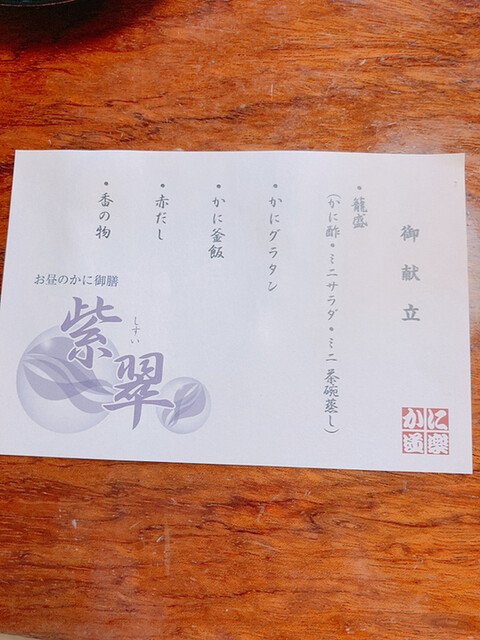 御献立
・籠盛
(かに酢・ミニサラダ・ミニ茶碗蒸し)
・かにグラタン
・かに釜飯
・赤だし
・香の物
お昼のかに御膳
紫翠
しすい
かに道楽